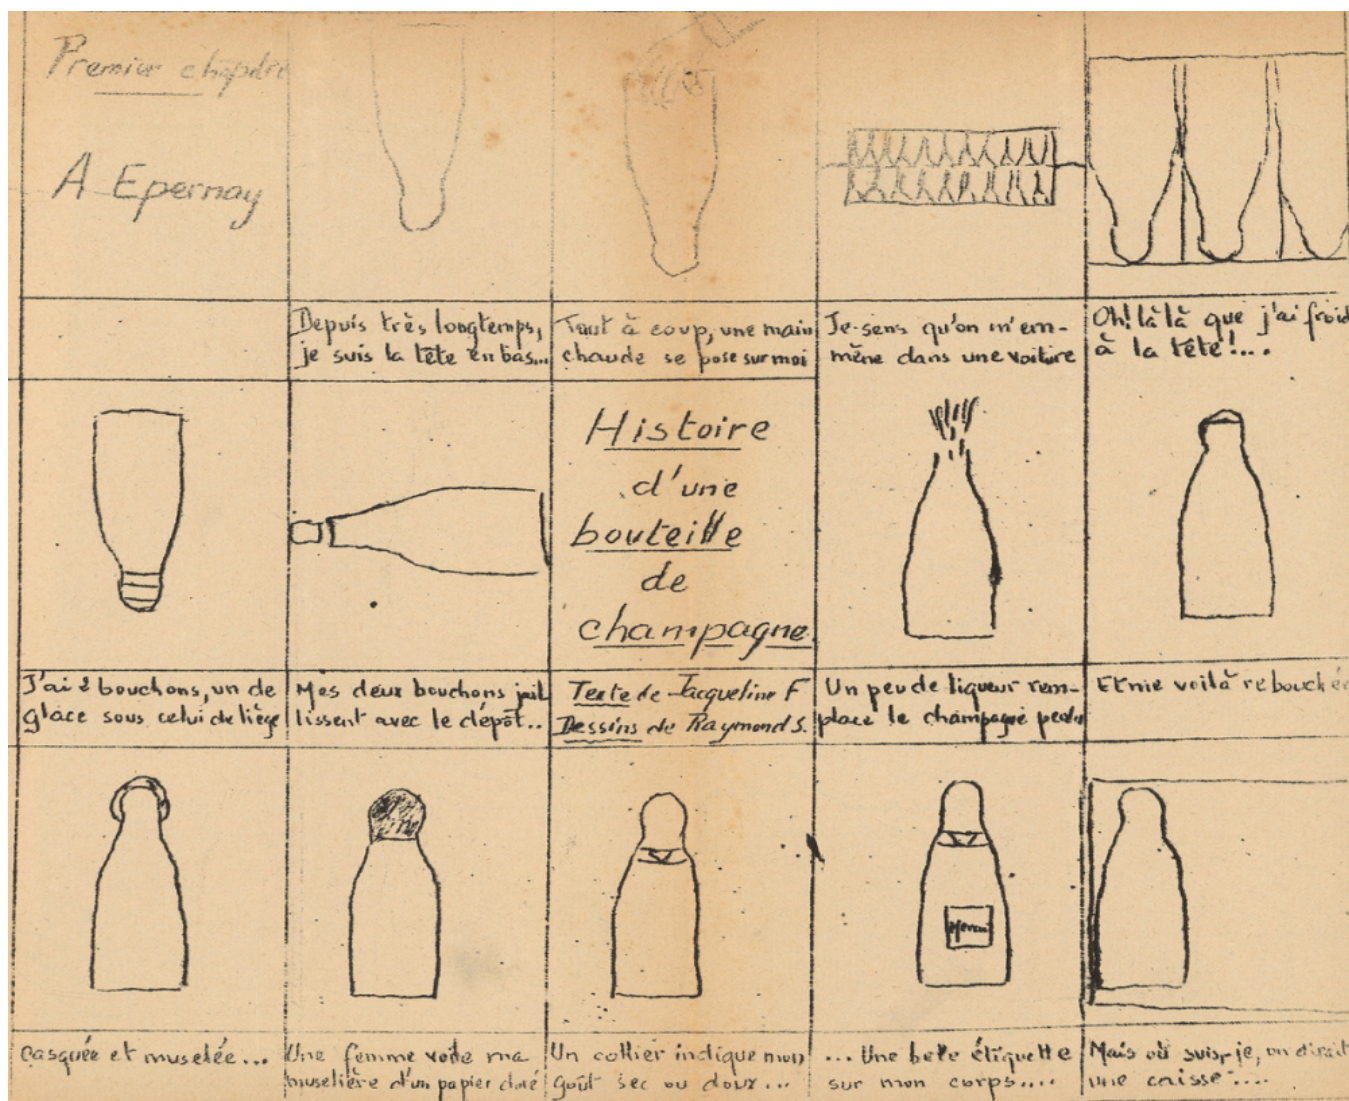 Premier chapitre
A Epernay
Depuis très longtemps,
je suis la tête en bas...
Tout à coup, une main
chaude se pose sur moi
Je sens qu'on m'em-
mène dans une voiture
Oh! là là que j'ai froid
à la tête!...
J'ai 2 bouchons, un de
glace sous celui de liège
Mes deux bouchons jail
lissent avec le dépôt..
Histoire
d'une
bouteille
de
champagne.
Texte de Jacqueline F
Dessins de Raymond S.
Un peu de liqueur rem-
place le champagne perdu
Et me voilà rebouchée
casquée et muselée...
Une femme voile ma
muselière d'un papier doré
Un collier indique mon
goût sec ou doux...
... Une belle étiquette
sur mon corps....
Mais où suis-je, on dirait
une caisse....